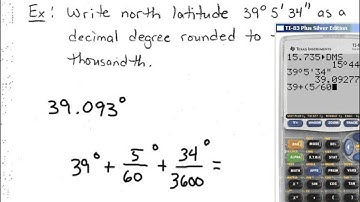 Ex: Write north latitude 39° 5' 34" as a
decimal degree rounded to
thousandth.
39.093°
39° + 5/60° + 34/3600° =
TI-83 Plus Silver Edition
TEXAS INSTRUMENTS
TI-83 Plus Silver Edition
15.735►DMS
15°44
39°5'34"
39.09277
39+(5/60